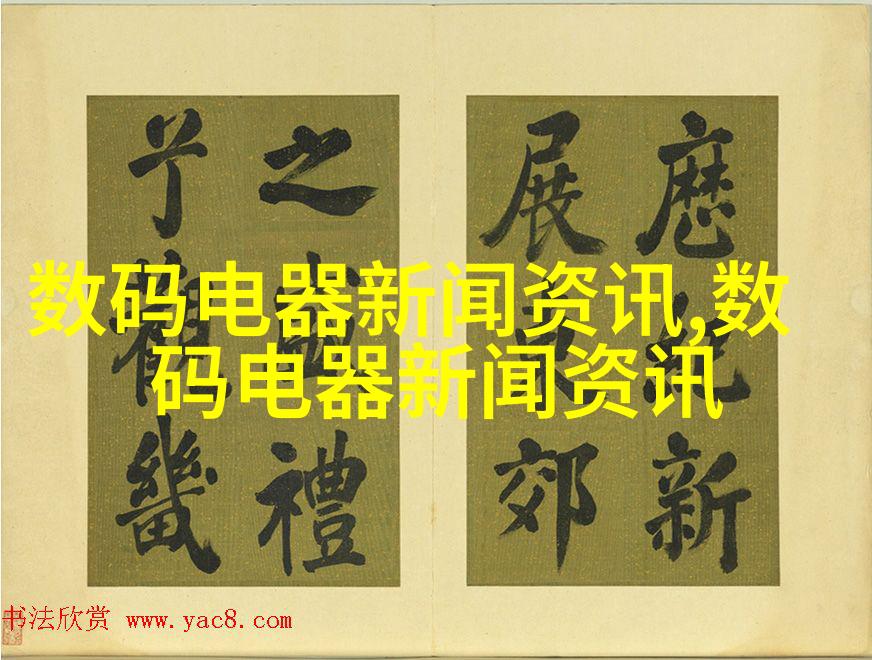 厯新
展東郊
之盛禮
觀畿
数码电器新闻资讯,数
码电器新闻资讯
书法欣赏 www.yac8.com